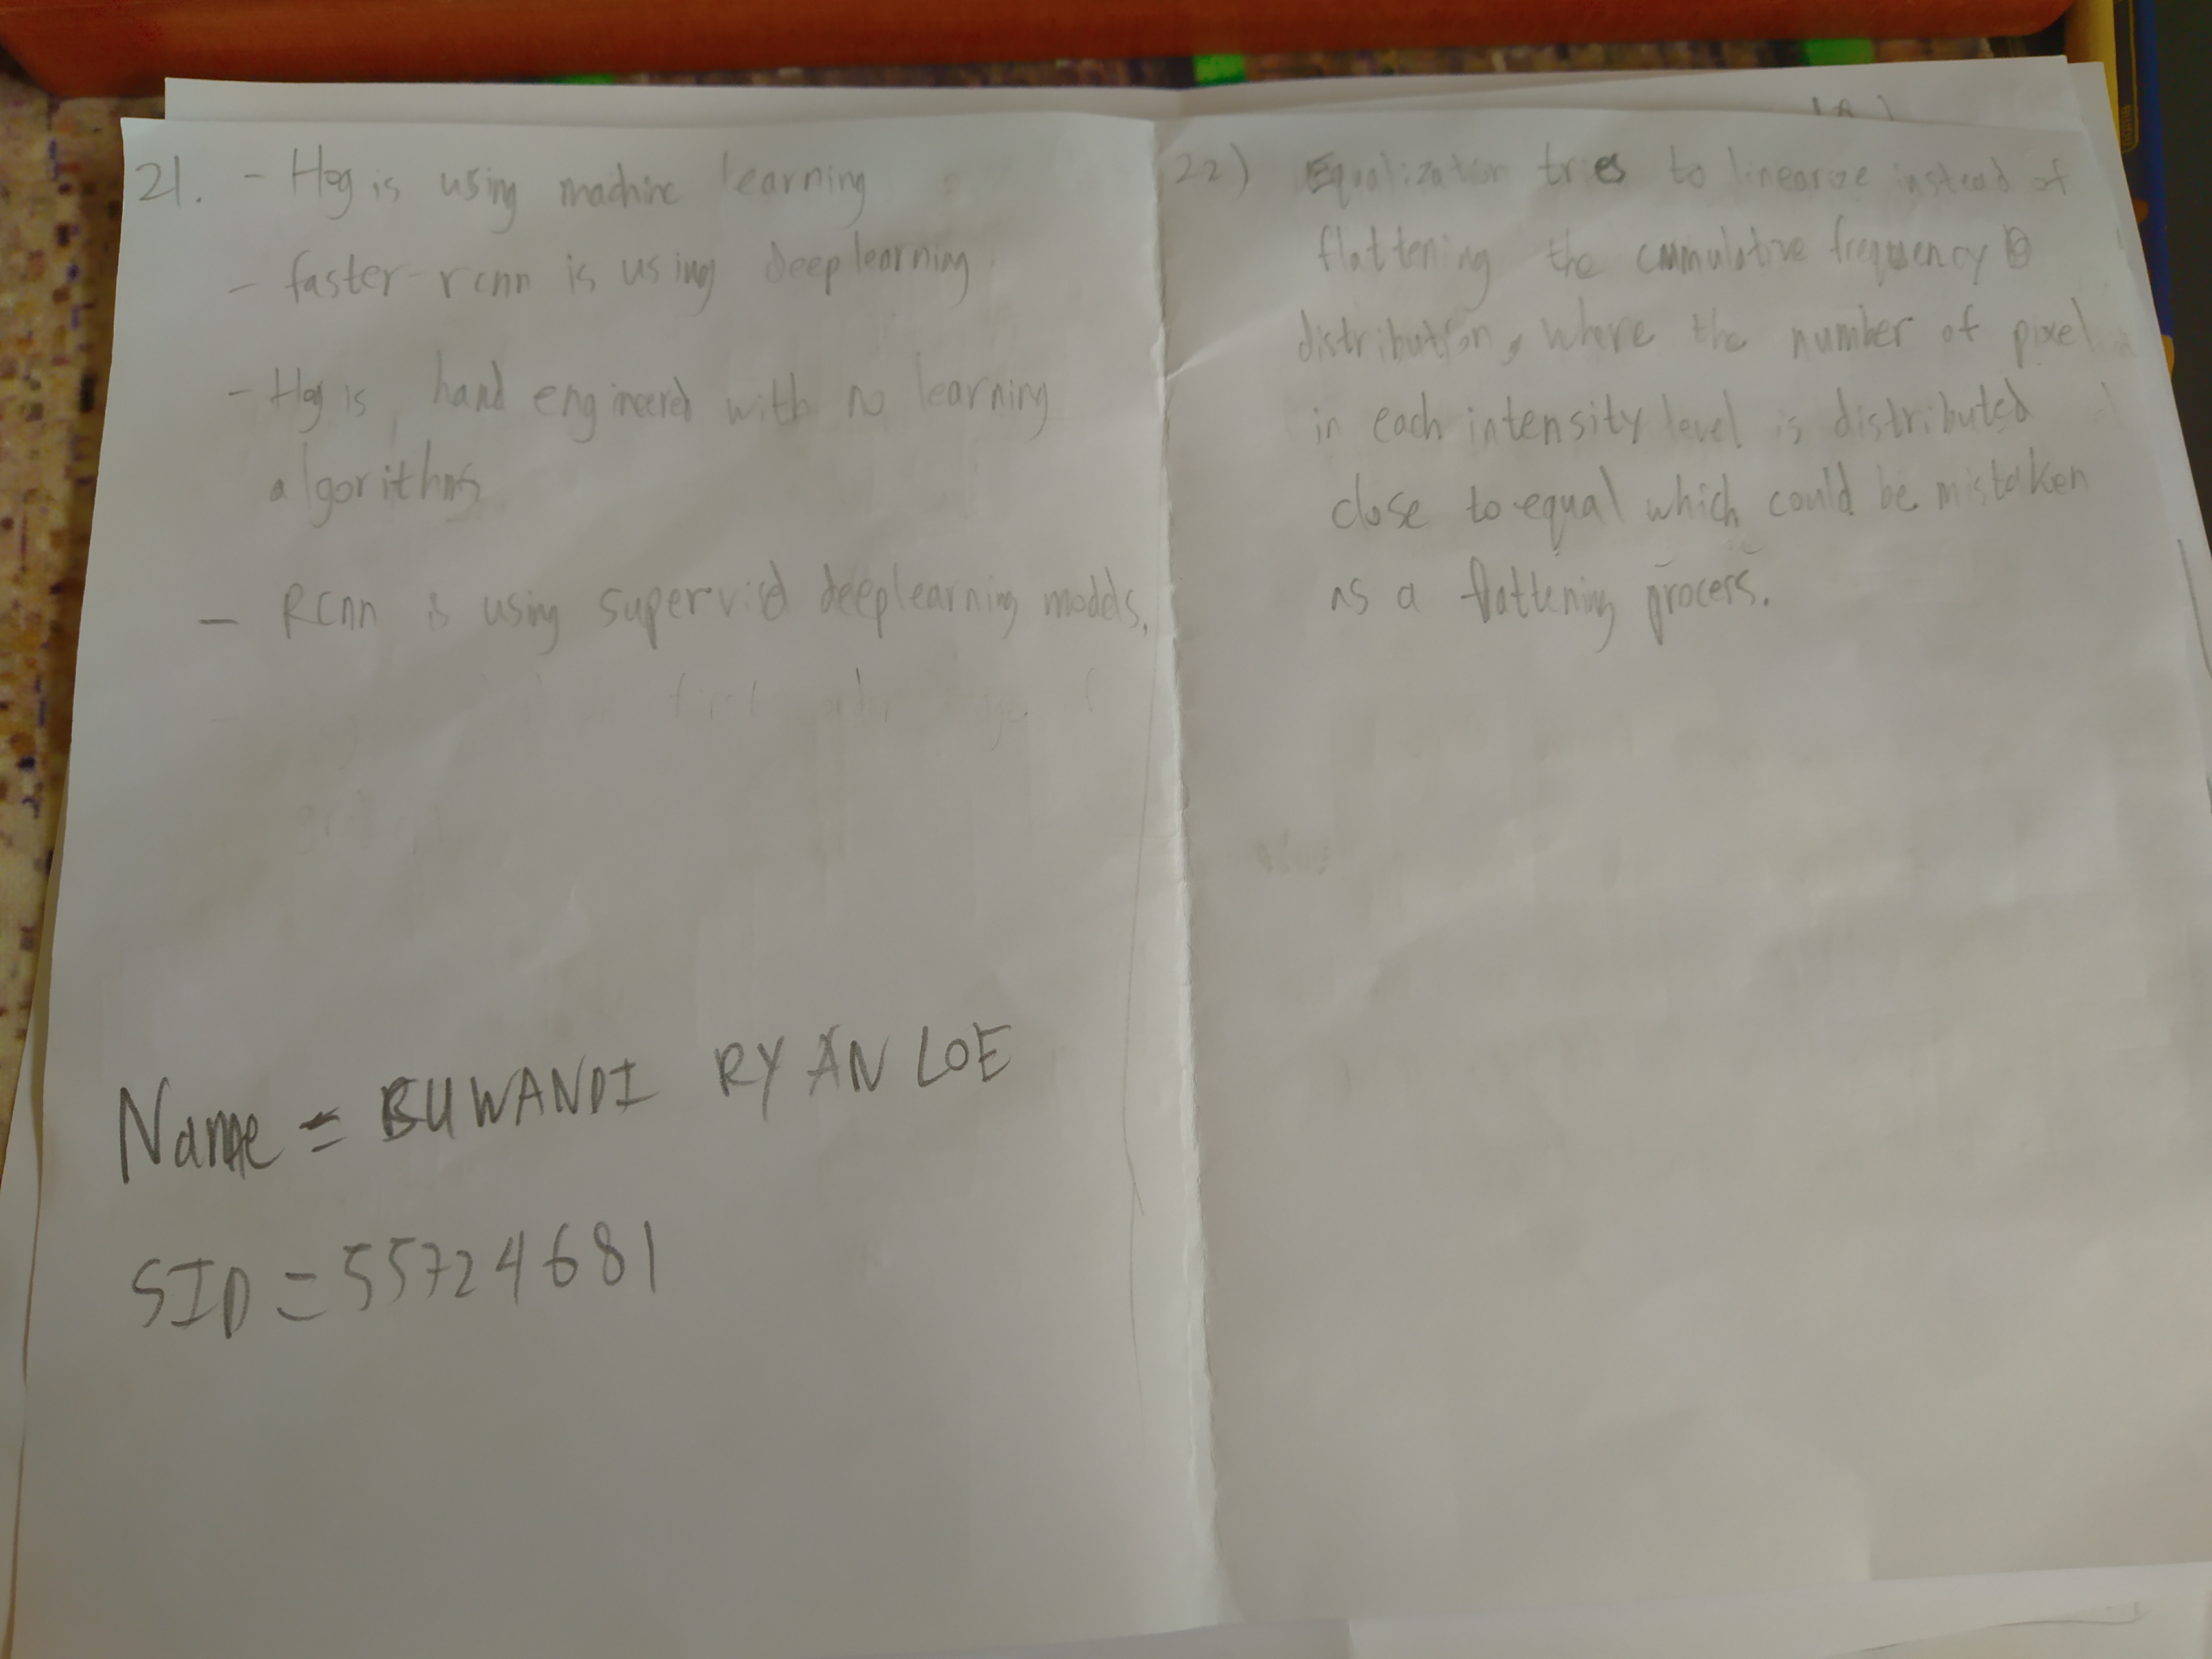 21. - Hog is using machine learning
- faster-rcnn is using deeplearning
- Hog is hand engineered with no learning
algorithms
- Rcnn is using supervised deeplearning models.
first order
Name = BUWANDI RYAN LOE
SID = 55724681
22) Equalization tries to linearize instead of
flattening the cummulative frequency
distribution, where the number of pixel
in each intensity level is distributed
close to equal which could be mistaken
as a flattening process.